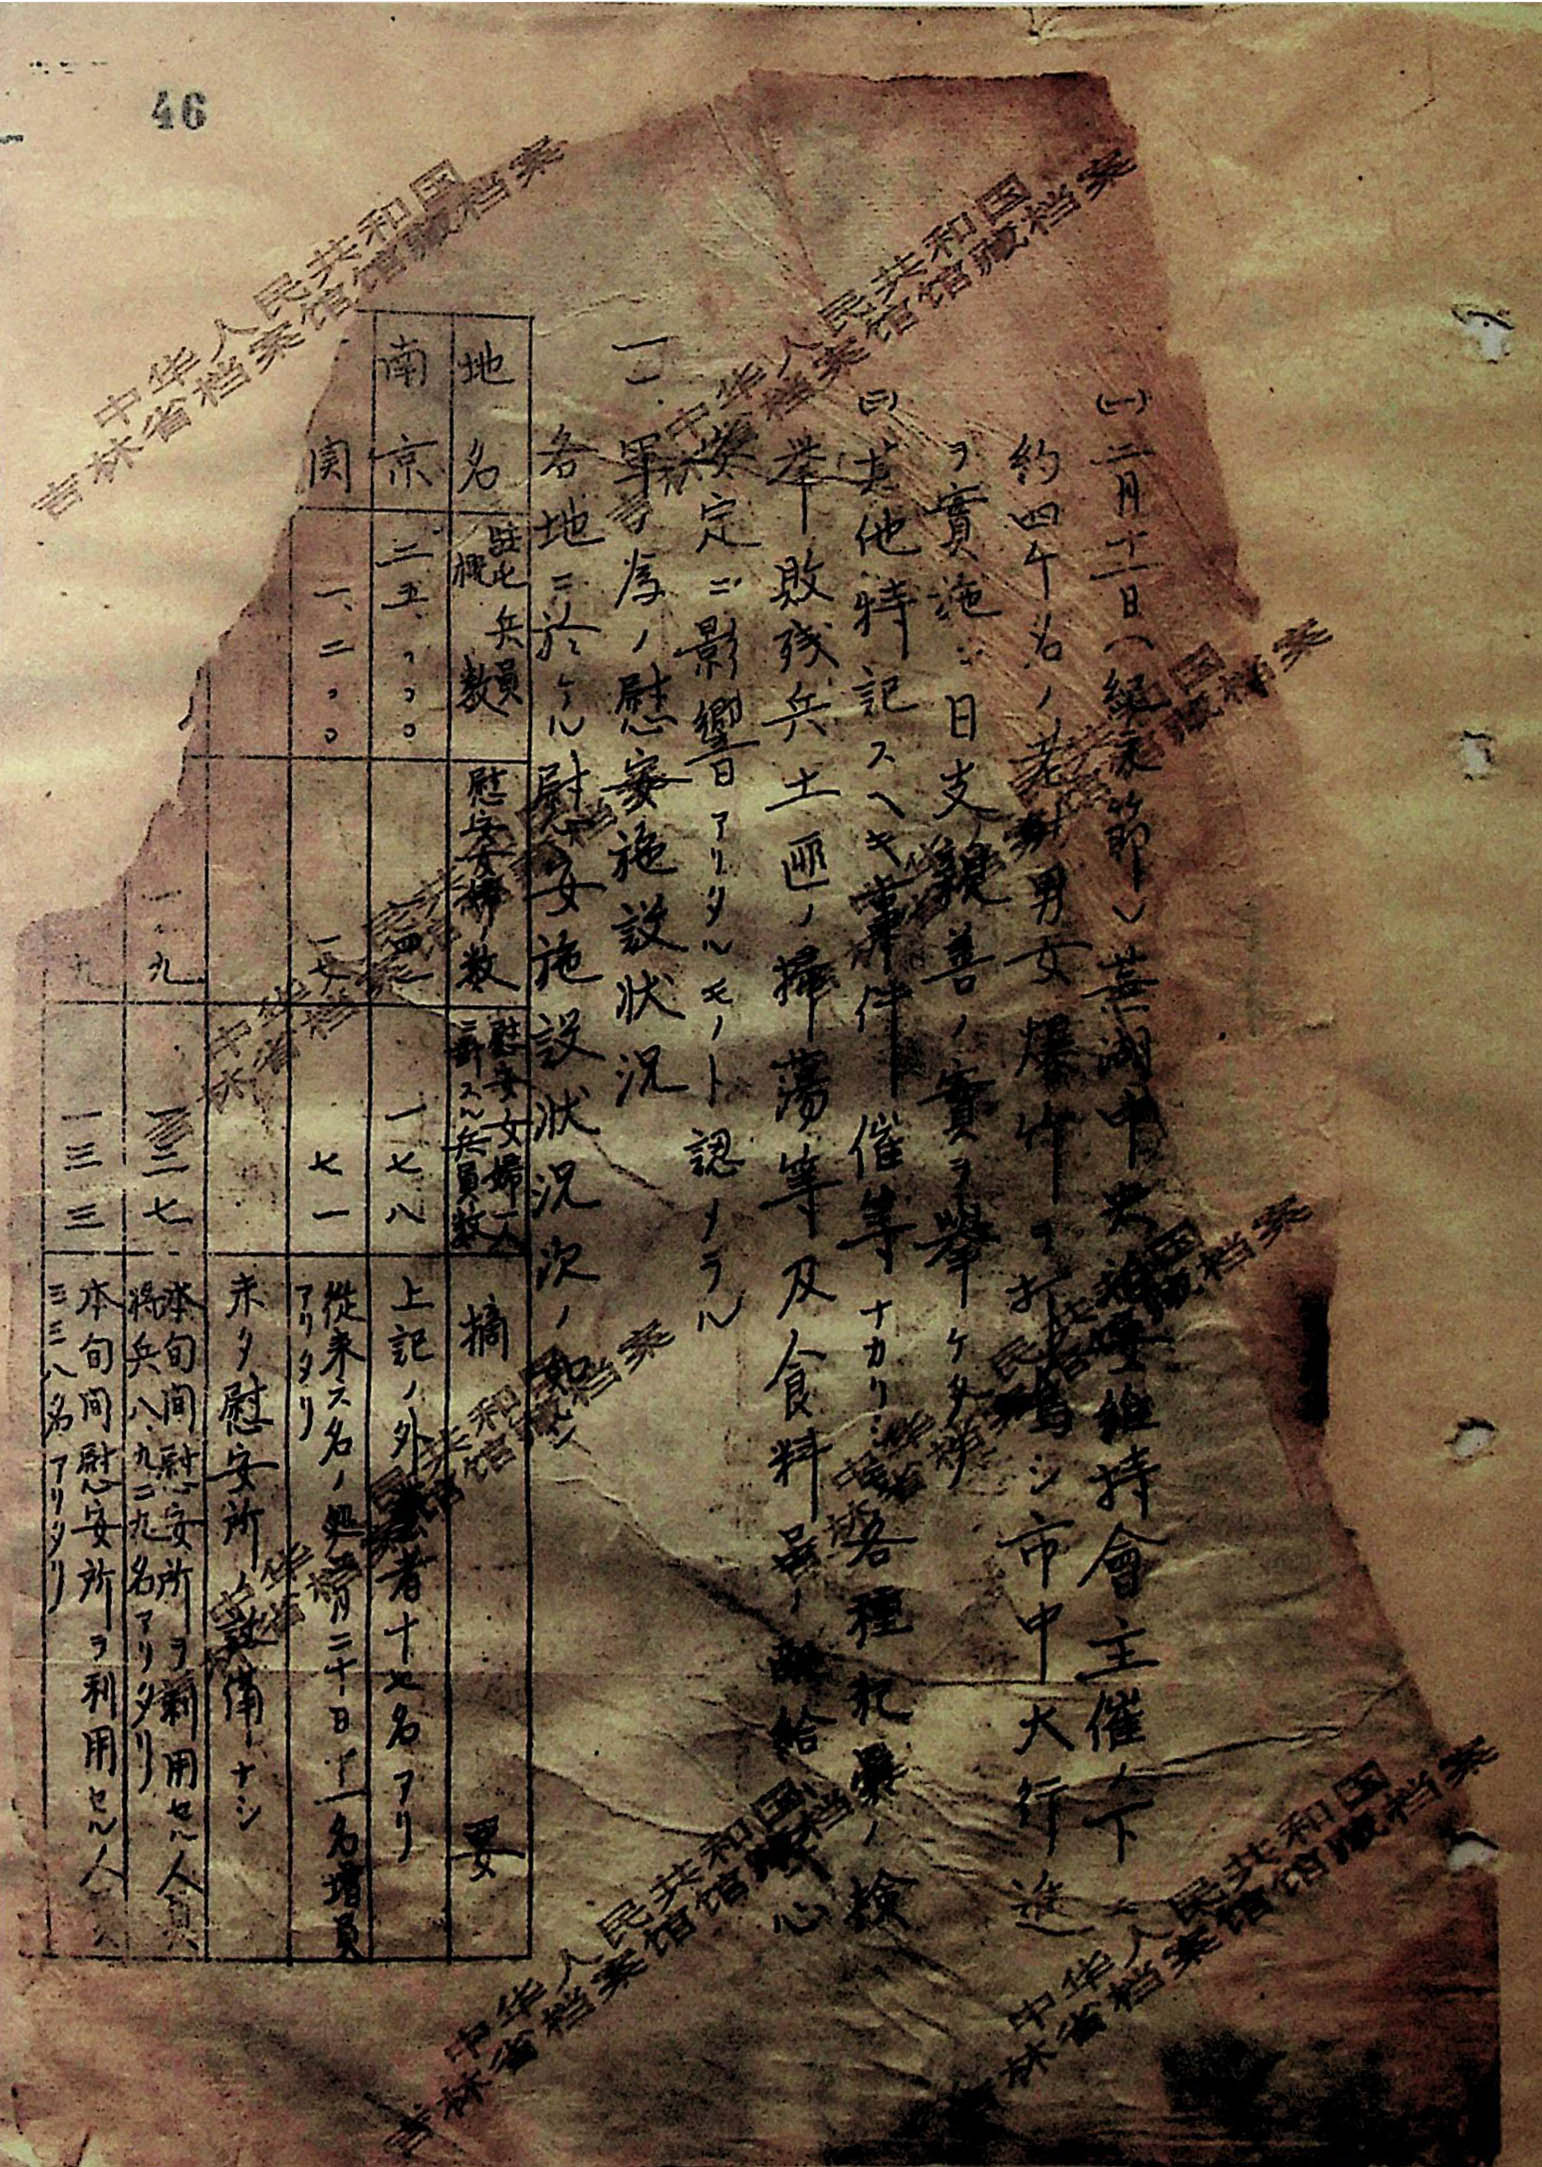 46
㈠二月十一日(紀元節)蕪湖中央
維持會主催ノ下ニ
約四千名ノ老若男女爆竹ヲ打鳴シ市中大行進
ヲ實施シ日支親善ノ實ヲ擧ケタリ
㈢其他特記スヘキ事件
催等ナカリシモ各種犯罪ノ検
挙敗残兵土匪ノ掃蕩等及食料品ノ
給
心
安定ニ影響アリタルモノト認メラル
二、軍ノ為ノ慰安施設状況
各地ニ於ケル慰安施設状況次ノ如シ
地名
駐屯兵員概数
慰安婦ノ数
慰安女婦一人ニ対スル兵員数
摘要
南京
二五、〇〇〇
一四一
一七八
上記ノ外
者十七名アリ
関
一、二〇〇
一七
七一
従来
名ノ処
月二十日
一名増員アリタリ
未タ慰安所ノ設備ナシ
一〇九
一三七
本旬間慰安所ヲ利用セル人員
将兵八、九二九名アリタリ
九
一三三
本旬間慰安所ヲ利用セル人
三三八名アリタリ
中华人民共和国
吉林省档案馆馆藏档案
中华人民共和国
吉林省档案馆馆藏档案
中华人民共和国
吉林省档案馆馆藏档案
中华人民共和国
吉林省档案馆馆藏档案